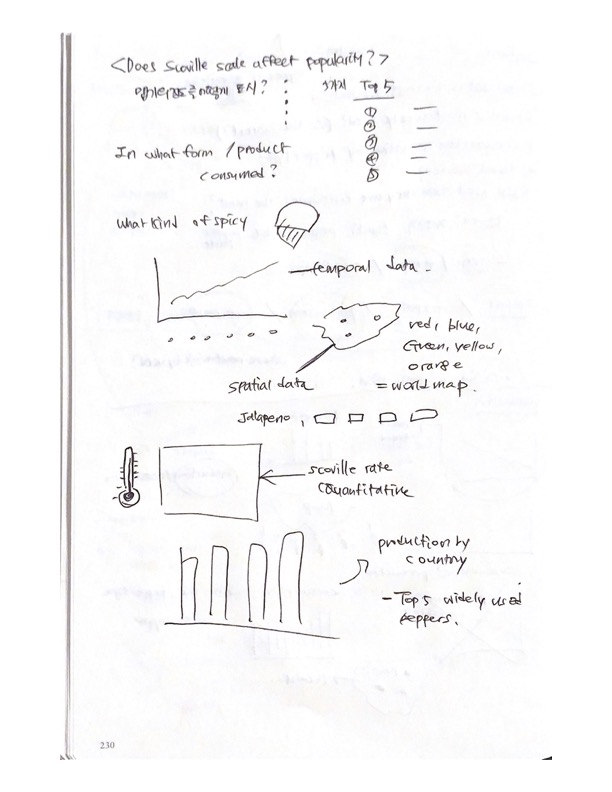 <Does Scoville scale affect popularity?>
인기의 정도를 어떻게 표시?
Top 5
①
②
③
④
⑤
In what form / product
consumed?
what kind of spicy
temporal data
red, blue,
Green, yellow,
orange
= world map.
spatial data
Jalapeno,
scoville rate
Quantitative
production by
country
- Top 5 widely used
peppers.
230